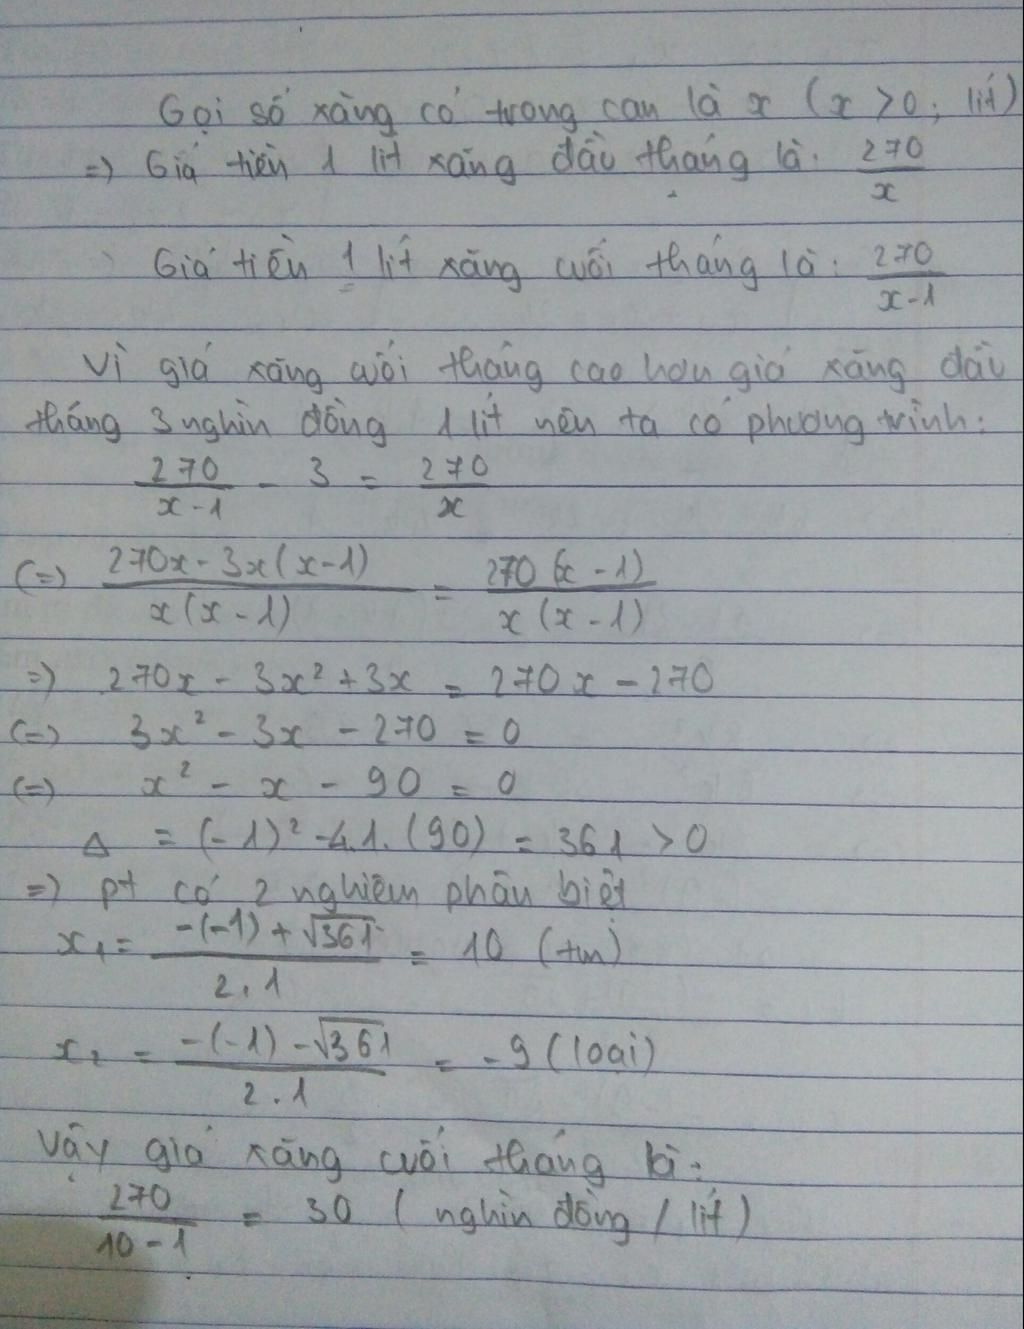 Gọi số xăng có trong can là x (x > 0, lít)
=> Giá tiền 1 lít xăng đầu tháng là: 270/x
Giá tiền 1 lít xăng cuối tháng là: 270/(x-1)
Vì giá xăng cuối tháng cao hơn giá xăng đầu
tháng 3 nghìn đồng 1 lít nên ta có phương trình:
270/(x-1) - 3 = 270/x
(=) (270x - 3x(x-1))/(x(x-1)) = 270(x-1)/(x(x-1))
=) 270x - 3x² + 3x = 270x - 270
(=) 3x² - 3x - 270 = 0
(=) x² - x - 90 = 0
Δ = (-1)² - 4.1.(90) = 361 > 0
=) pt có 2 nghiệm phân biệt
x₁ = (-(-1) + √361)/(2.1) = 10 (tm)
x₂ = (-(-1) - √361)/(2.1) = -9 (loại)
Vậy giá xăng cuối tháng là:
270/(10-1) = 30 (nghìn đồng / lít)